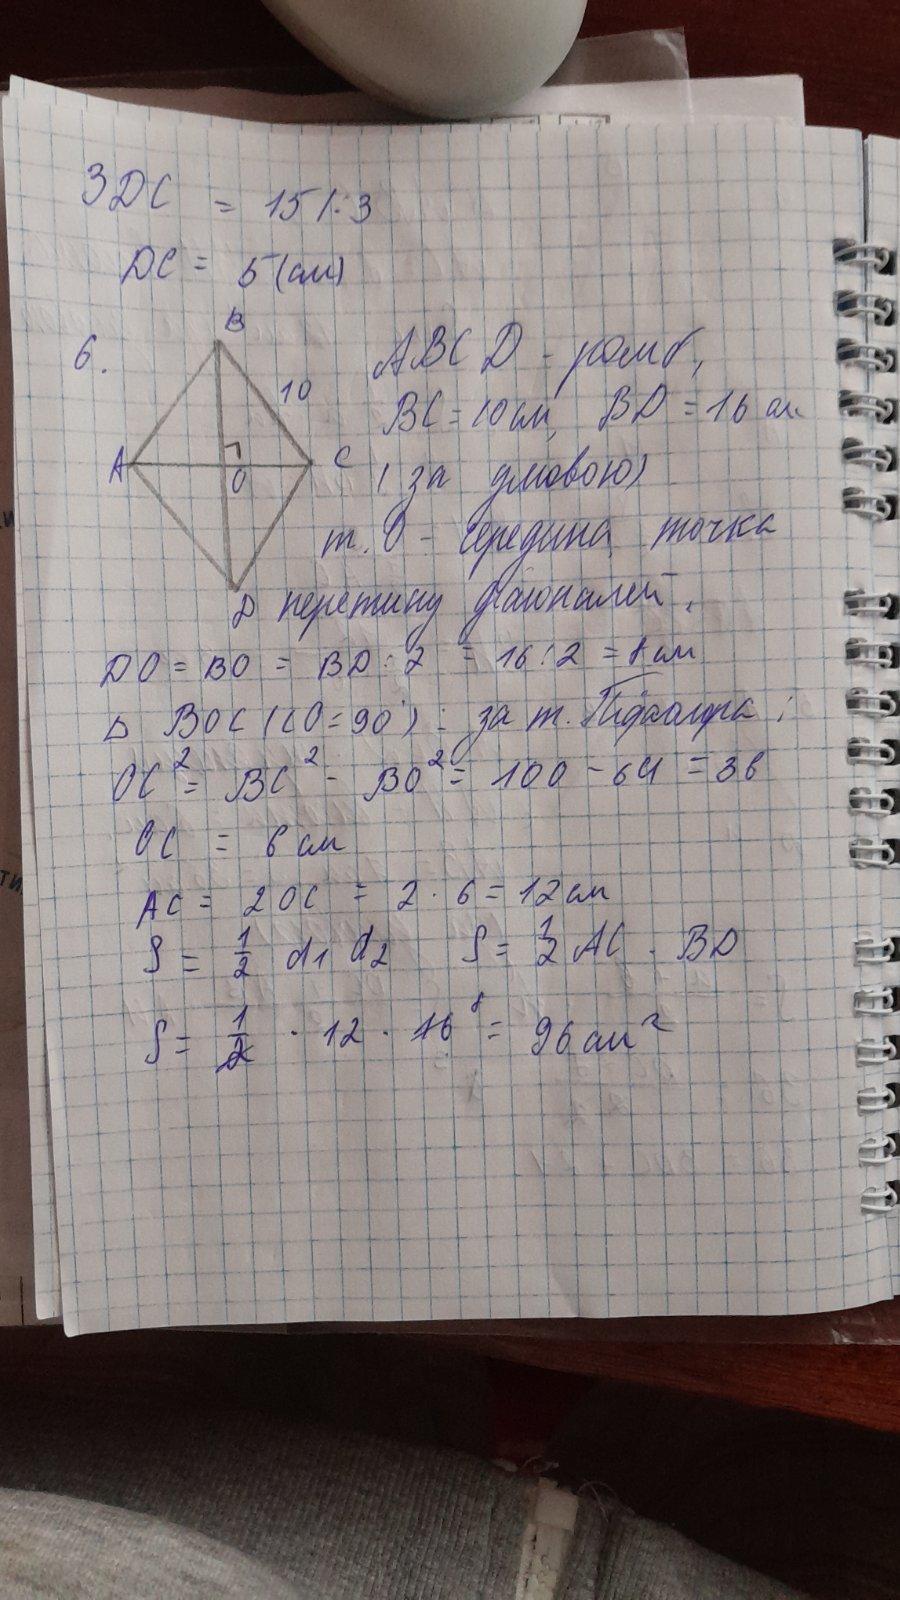 3DC = 15 | : 3
DC = 5 (см)
6.
B
10
A
C
O
D
ABCD - ромб,
BC = 10 см, BD = 16 см
(за умовою)
т. O - середина, точка
перетину діагоналей.
DO = BO = BD : 2 = 16 : 2 = 8 см
Δ BOC (∠O = 90°) : за т. Піфагора :
OC² = BC² - BO² = 100 - 64 = 36
OC = 6 см
AC = 2 OC = 2 · 6 = 12 см
S = 1/2 d1 d2 S = 1/2 AC · BD
S = 1/2 · 12 · 16 8 = 96 см²